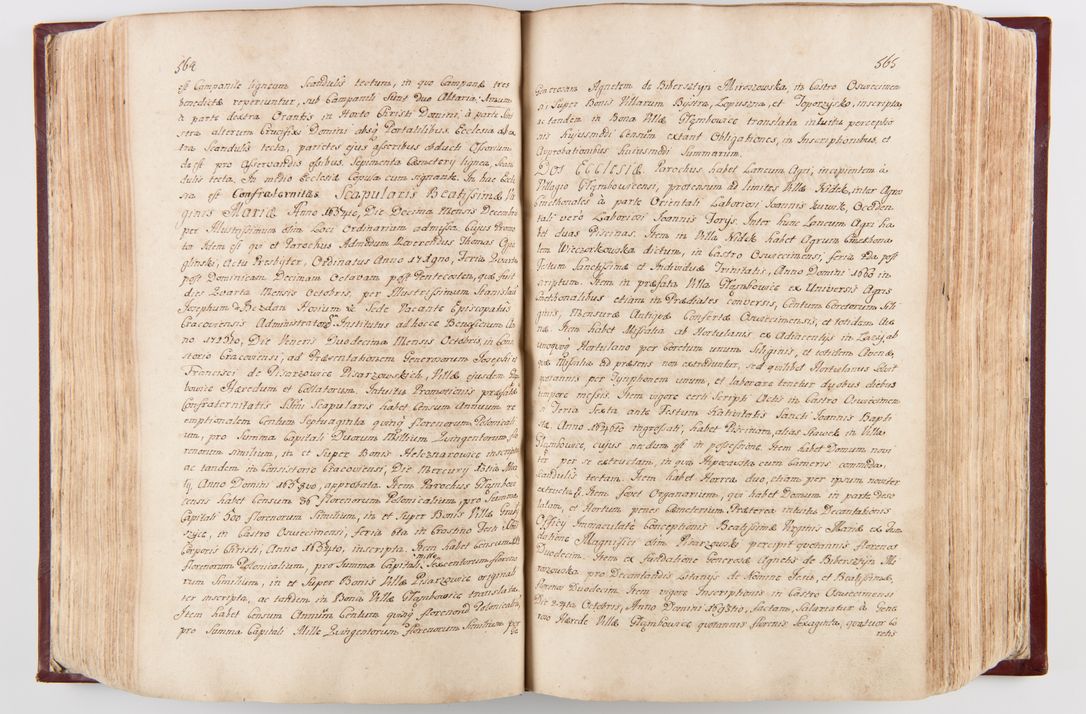 564
est Campanile ligneum Scandulis tectum, in quo Campanæ tres
benedictæ reperiuntur, sub Campanili sunt duo Altaria: Unum
à parte dextra Orantis in Horto Christi Domini, à parte sini
stra alterum Crucifixi Domini absq Portatilibus. Ecclesia
tra Scandulis tecta, parietes ejus asseribus obducti Ossorium
deest pro Asservandis ossibus. Sepimenta Cæmeterij lignea, Scan
dulis tecta. In medio Ecclesiæ Copula cum signante. In hac Eccle
sia est Confraternitas Scapularis Beatissimæ Vir
ginis Mariæ Anno Die Decima Mensis Decembris
per Illustrissimum olim Loci Ordinarium admissa. Cujus Promo
tor Idem est qui et Parochus Admodum Reverendus Thomas
glinski, Actu Presbyter, Ordinatus Anno Feria Quarta
post Dominicam Decimam Octavam post Pentecosten, quæ fuit
dies Quarta Mensis Octobris, per Illustrissimum Stanislaum
Josephum de Bezdan Hosium Sede Vacante Episcopatus
Cracoviensis Administratorem Institutus ad hocce Beneficium An
no Die Veneris Duodecima Mensis Octobris, in Consi
storio Cracoviensi, ad Præsentationem Generosorum Josephi et
Francisci de Pisarzowice Pisarzowskich, Villæ ejusdem
bowice Hæredum et Collatorum. Intuitu Promotionis præfatæ
Confraternitatis SSmi Scapularis habet Censum Annuum re
emptionalem Centum Septuaginta quinq florenorum Polonicali
um, pro Summa Capitali Duorum Millium Quingentorum flo
renorum similium, in et super Bonis Heleznarowice inscripta
ac tandem in Consistorio Cracoviensi, Die Mercurij 13tia
ij Anno Domini approbata. Item Parochus Glembovi
censis habet Censum 36 florenorum Polonicalium, pro Summa
Capitali 500 florenorum Similium, in et super Bonis Villæ
szyce, in Castro Osviecimensi, feria 6ta in Crastino Festi SSmi
Corporis Christi, Anno inscripta. Item habet Censum
florenorum Polonicalium, pro Summa Capitali Mille Sexcentorum floreno
rum Similium, in et super Bonis Villæ Pisarzowice original
ter inscripta, ac tandem in Bona Villæ Glembowice translata.
Item habet Censum Annuum Centum quinq florenorum Polonicalium,
pro Summa Capitali Mille Quingentorum florenorum Similium per
Ge
565
nerosam Agnetem de Bibersztyn Miroszowska, in Castro Osviecimen
si, super Bonis Villarum Bystra, Lopuszna, et Toporzysko, inscripta,
ac tandem in Bona Villæ Glembowice translata intuitu perceptio
nis hujusmodi Censuum extant Obligationes, in Inscriptionibus, et
Approbationibus hujusmodi Summarum.
Dos Ecclesiæ Parochus habet Laneum Agri, incipientem à
Villagio Glembowicensi, protensum ad limites Villæ Nidek, inter Agros
Cmethonales à parte Orientali Laboriosi Joannis Occiden
tali verò Laboriosi Joannis Forys. Inter hunc Laneum Agri ha
bet duas Piscinas. Item in Villa Nidek habet Agrum Cmethona
lem Wieczorkowska dictum, in Castro Osviecimensi, feria 2da post
Festum Sanctissimæ et Individuæ Trinitatis, Anno Domini 1663 in
scriptum. Item in præfata Villa Glembowice ex Universis Agris
Cmethonalibus etiam in Prædiales conversis, Centum Coretorum Sili
ginis, Mensuræ Antiquæ Consertæ Osviecimensis, et totidem Ave
næ. Item habet Missalia ab Hortulanis ex Adjacentijs in ab
unoquoq Hortulano per Coretum unum Siliginis, et totidem Avenæ,
quæ Missalia ad præsens non extraduntur, sed quilibet Hortulanus
quotannis per Tynphonem unum, et laborare tenetur duobus diebus
tempore messis. Item vigore certi Scripti Actis in Castro Osviecimen
si Feria Sexta ante Festum Nativitatis Sancti Joannis Bapti
stæ. Anno ingrossati, habet Piscinam, alias Stawek in Villa
Glembowice, cujus nedum est in possessione. Item habet Domum novi
ter per se extructam, in qua Hipocausta cum Cameris commoda,
Scandulis tectam. Item habet Horrea duo, etiam per ipsum noviter
extructa. Item fovet Organarium, qui habet Domum in parte deso
latam, et Hortum penes Cæmeterium. Præterea intuitu Decantationis
Officij Immaculatæ Conceptionis Beatissimæ Virginis Mariæ ex Fun
datione Magnifici olim Pisarzowski percipit quotannis florenos
Duodecim. Item ex fundatione Generosæ Agnetis de Bibersztyn Mi
roszowska pro Decantandis Litanijs de Nomine Jesu, et Beatissimæ,
florenos Duodecim. Item vigore Inscriptionis in Castro Osviecimensi
Die 24ta Octobris, Anno Domini factam, Salariatur à Gene
roso Hærede Villæ Glembowice quotannis florenis Sexaginta, quatuor Co
retis